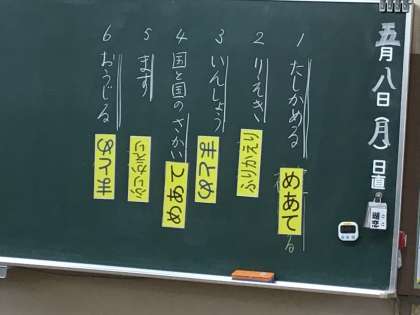 五月八日(月)
日直
1 たしかめる
めあて
2 りえき
ふりかえり
3 いんしょう
まとめ
4 国と国のさかい
めあて
5 ます
ふりかえり
6 おうじる
まとめ